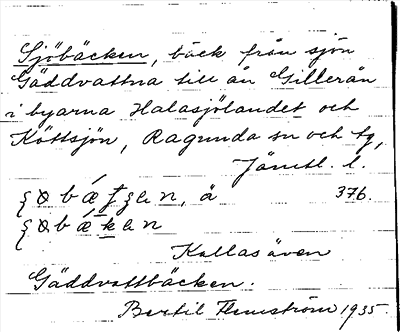 Sjöbäcken, bäck från sjön
Gäddvattna till ån Gillerån
i byarna Halasjölandet och
Köttsjön, Ragunda sn och tg,
Jämtl. l.
å 376.
Kallas även
Gäddvattbäcken.
Bertil Flemström 1935.